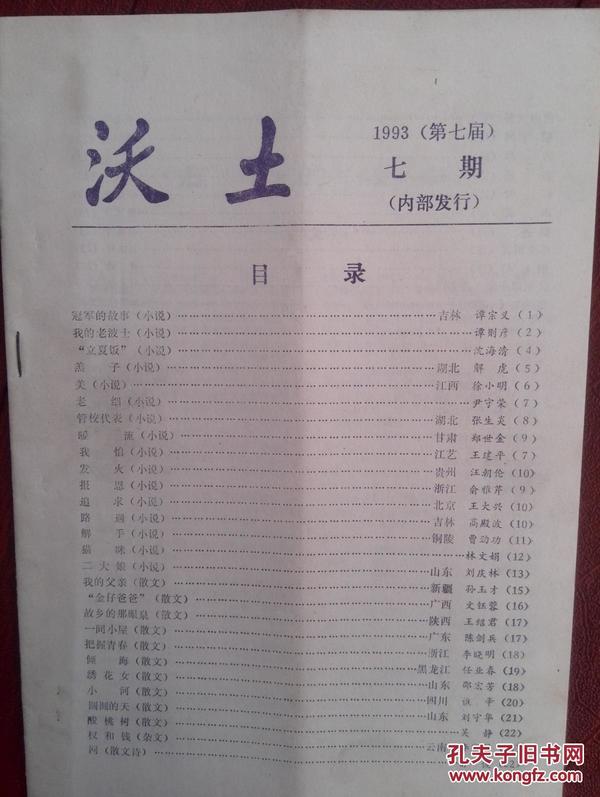 沃土
1993（第七届）
七 期
（内部发行）
目 录
冠军的故事（小说）……吉林 谭宗义（1）
我的老波士（小说）……谭则彦（2）
“立夏饭”（小说）……沈海清（4）
羔 子（小说）……湖北 解 虎（5）
美（小说）……江西 徐小明（6）
老 绍（小说）……尹守荣（7）
管校代表（小说）……湖北 张生炎（8）
暖 流（小说）……甘肃 郑世金（9）
我 怕（小说）……江艺 王建平（7）
发 火（小说）……贵州 汪朝伦（10）
报 恩（小说）……浙江 俞雅芹（9）
追 求（小说）……北京 王大兴（10）
路 遇（小说）……吉林 高殿波（10）
解 手（小说）……铜陵 曹劲功（11）
猫 咪（小说）……林文娟（12）
二大娘（小说）……山东 刘庆林（13）
我的父亲（散文）……新疆 孙玉才（15）
“金仔爸爸”（散文）……广西 文钰蓉（16）
故乡的那眼泉（散文）……陕西 王绍君（17）
一间小屋（散文）……广东 陈剑兵（17）
把握青春（散文）……浙江 李晓明（18）
倾 海（散文）……黑龙江 任业春（19）
绣花女（散文）……山东 邵宏芳（18）
小 河（散文）……四川 谯 辛（20）
圆圆的天（散文）……山东 刘守华（21）
酸桃树（散文）……吴 静（22）
权和钱（杂文）……云南
河（散文诗）……
孔夫子旧书网
www.kongfz.com